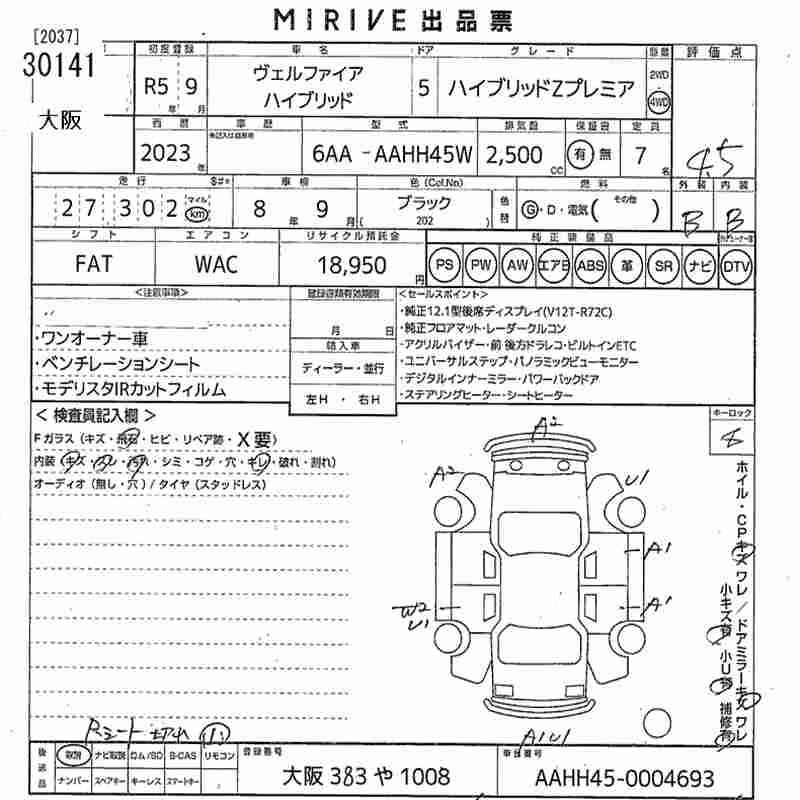 MIRIVE 出品票
[2037]
30141
大阪
初度登録 車名 ドア グレード 駆動 評価点
R5 9 年 月
ヴェルファイア
ハイブリッド
5
ハイブリッドZプレミア
2WD
4WD
4.5
西暦 車歴 型式 排気量 保証書 定員
2023 年
6AA - AAHH45W
2,500 CC
有 無
7 名
外装 内装
B B
走行 $#* 車検 色(Col.No) 色替 燃料
27302 マイル km
8 年 9 月
ブラック
( 202 )
G・D・電気( その他 )
シフト エアコン リサイクル預託金 純正装備品
FAT WAC 18,950 円
PS PW AW エアB ABS 革 SR ナビ DTV
<注意事項>
・ワンオーナー車
・ベンチレーションシート
・モデリスタIRカットフィルム
月 日
輸入車
ディーラー・並行
左H ・ 右H
<セールスポイント>
・純正12.1型後席ディスプレイ(V12T-R72C)
・純正フロアマット・レーダークルコン
・アクリルバイザー・前 後方ドラレコ・ビルトインETC
・ユニバーサルステップ・パノラミックビューモニター
・デジタルインナーミラー・パワーバックドア
・ステアリングヒーター・シートヒーター
<検査員記入欄>
Fガラス(キズ・飛石・ヒビ・リペア跡・X要)
内装(キズ・スレ・汚れ・シミ・コゲ・穴・キレ・破れ・割れ)
オーディオ(無し・穴)/タイヤ(スタッドレス)
キーロック
A2
A2
U1
A1
A1
W2
U1
A1U1
ホイル・CPキズワレ/ドアミラーキズワレ
小キズ有 小U有 補修有
Rシート切れ
後送品
取説 ナビ取説 ロム/SD B-CAS リモコン
ナンバー スペアキー キーレス スマートキー
登録番号
大阪 383 や 1008
車台番号
AAHH45-0004693